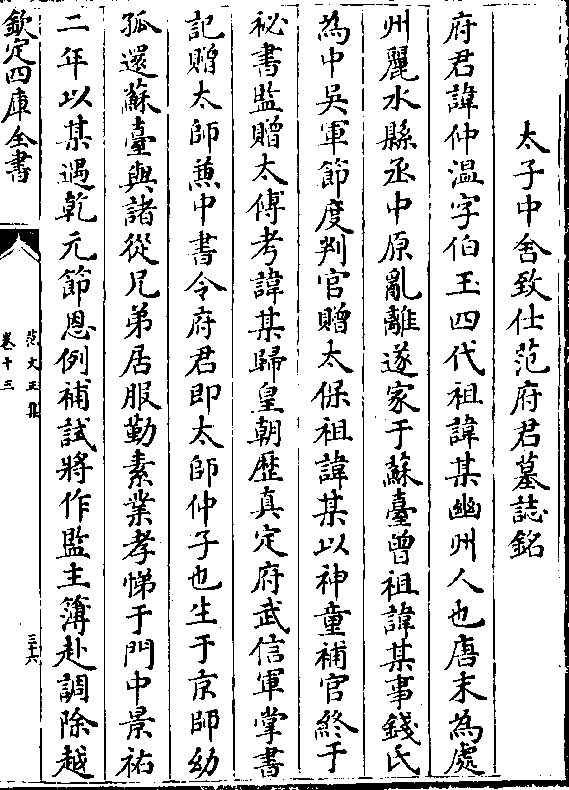 太子中舍致仕范府君墓誌銘
府君諱仲温字伯玉四代祖諱某幽州人也唐末為處
州麗水縣丞中原亂離遂家于蘇臺曾祖諱某事錢氏
為中吳軍節度判官贈太保祖諱某以神童補官終于
秘書監贈太傅考諱某歸皇朝歴真定府武信軍掌書
記贈太師兼中書令府君即太師仲子也生于京師幼
孤還蘇臺與諸從兄弟居服勤素業孝悌于門中景祐
二年以某遇乾元節恩例補試將作監主簿赴調除越
欽定四庫全書
范文正集
卷十三
三十六